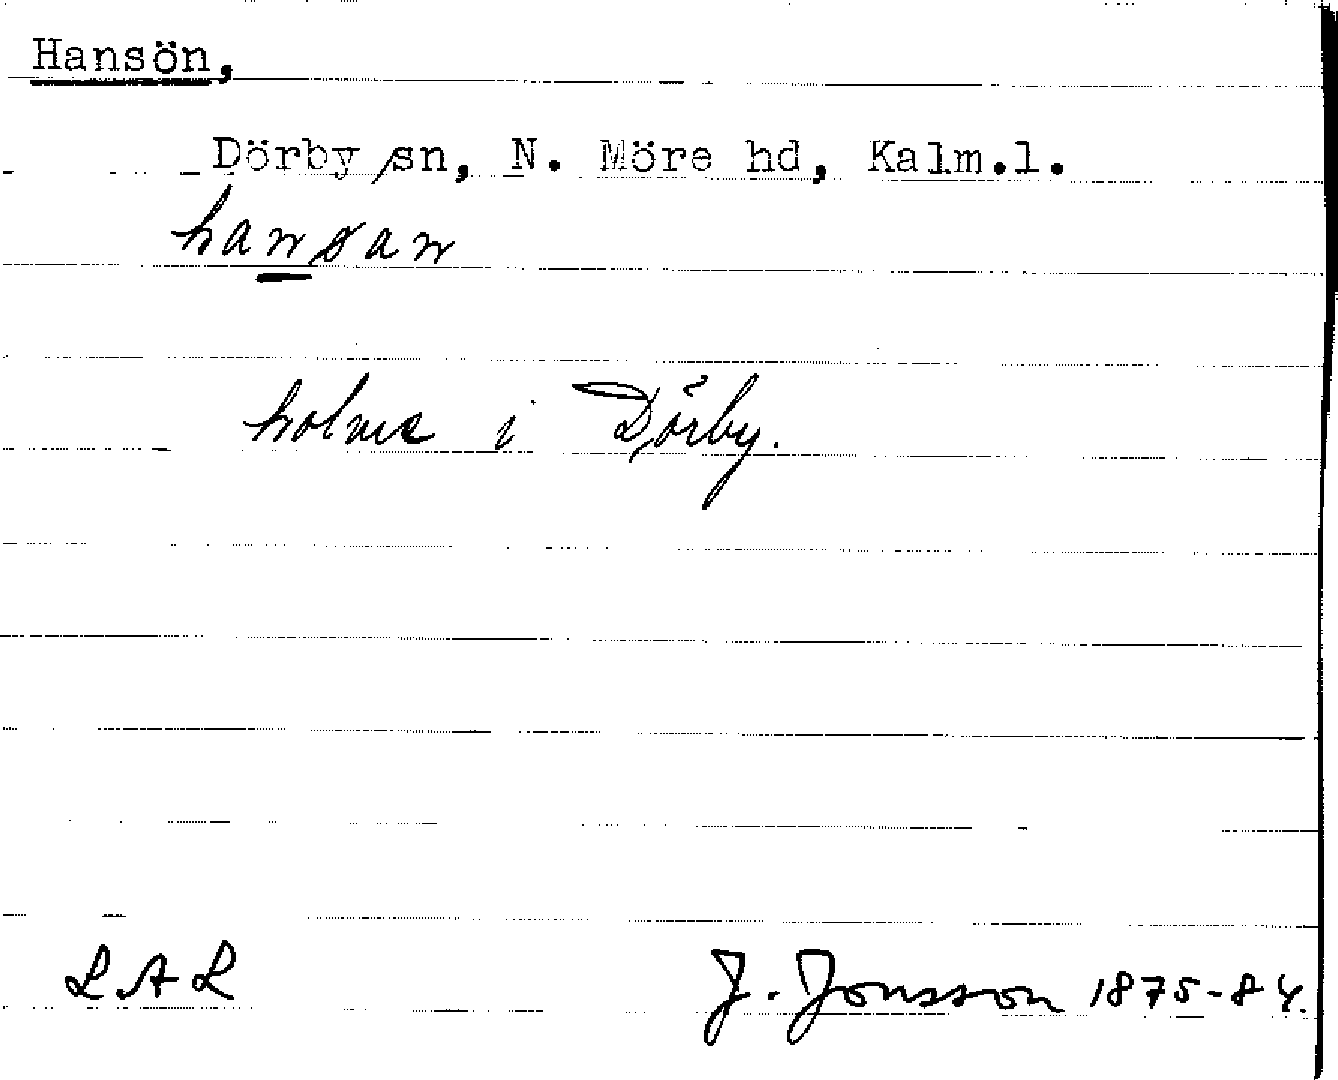 Hansön,
Dörby sn, N. Möre hd, Kalm.l.
hansan
holme i Dörby.
LAL
J. Jonsson 1875-84.